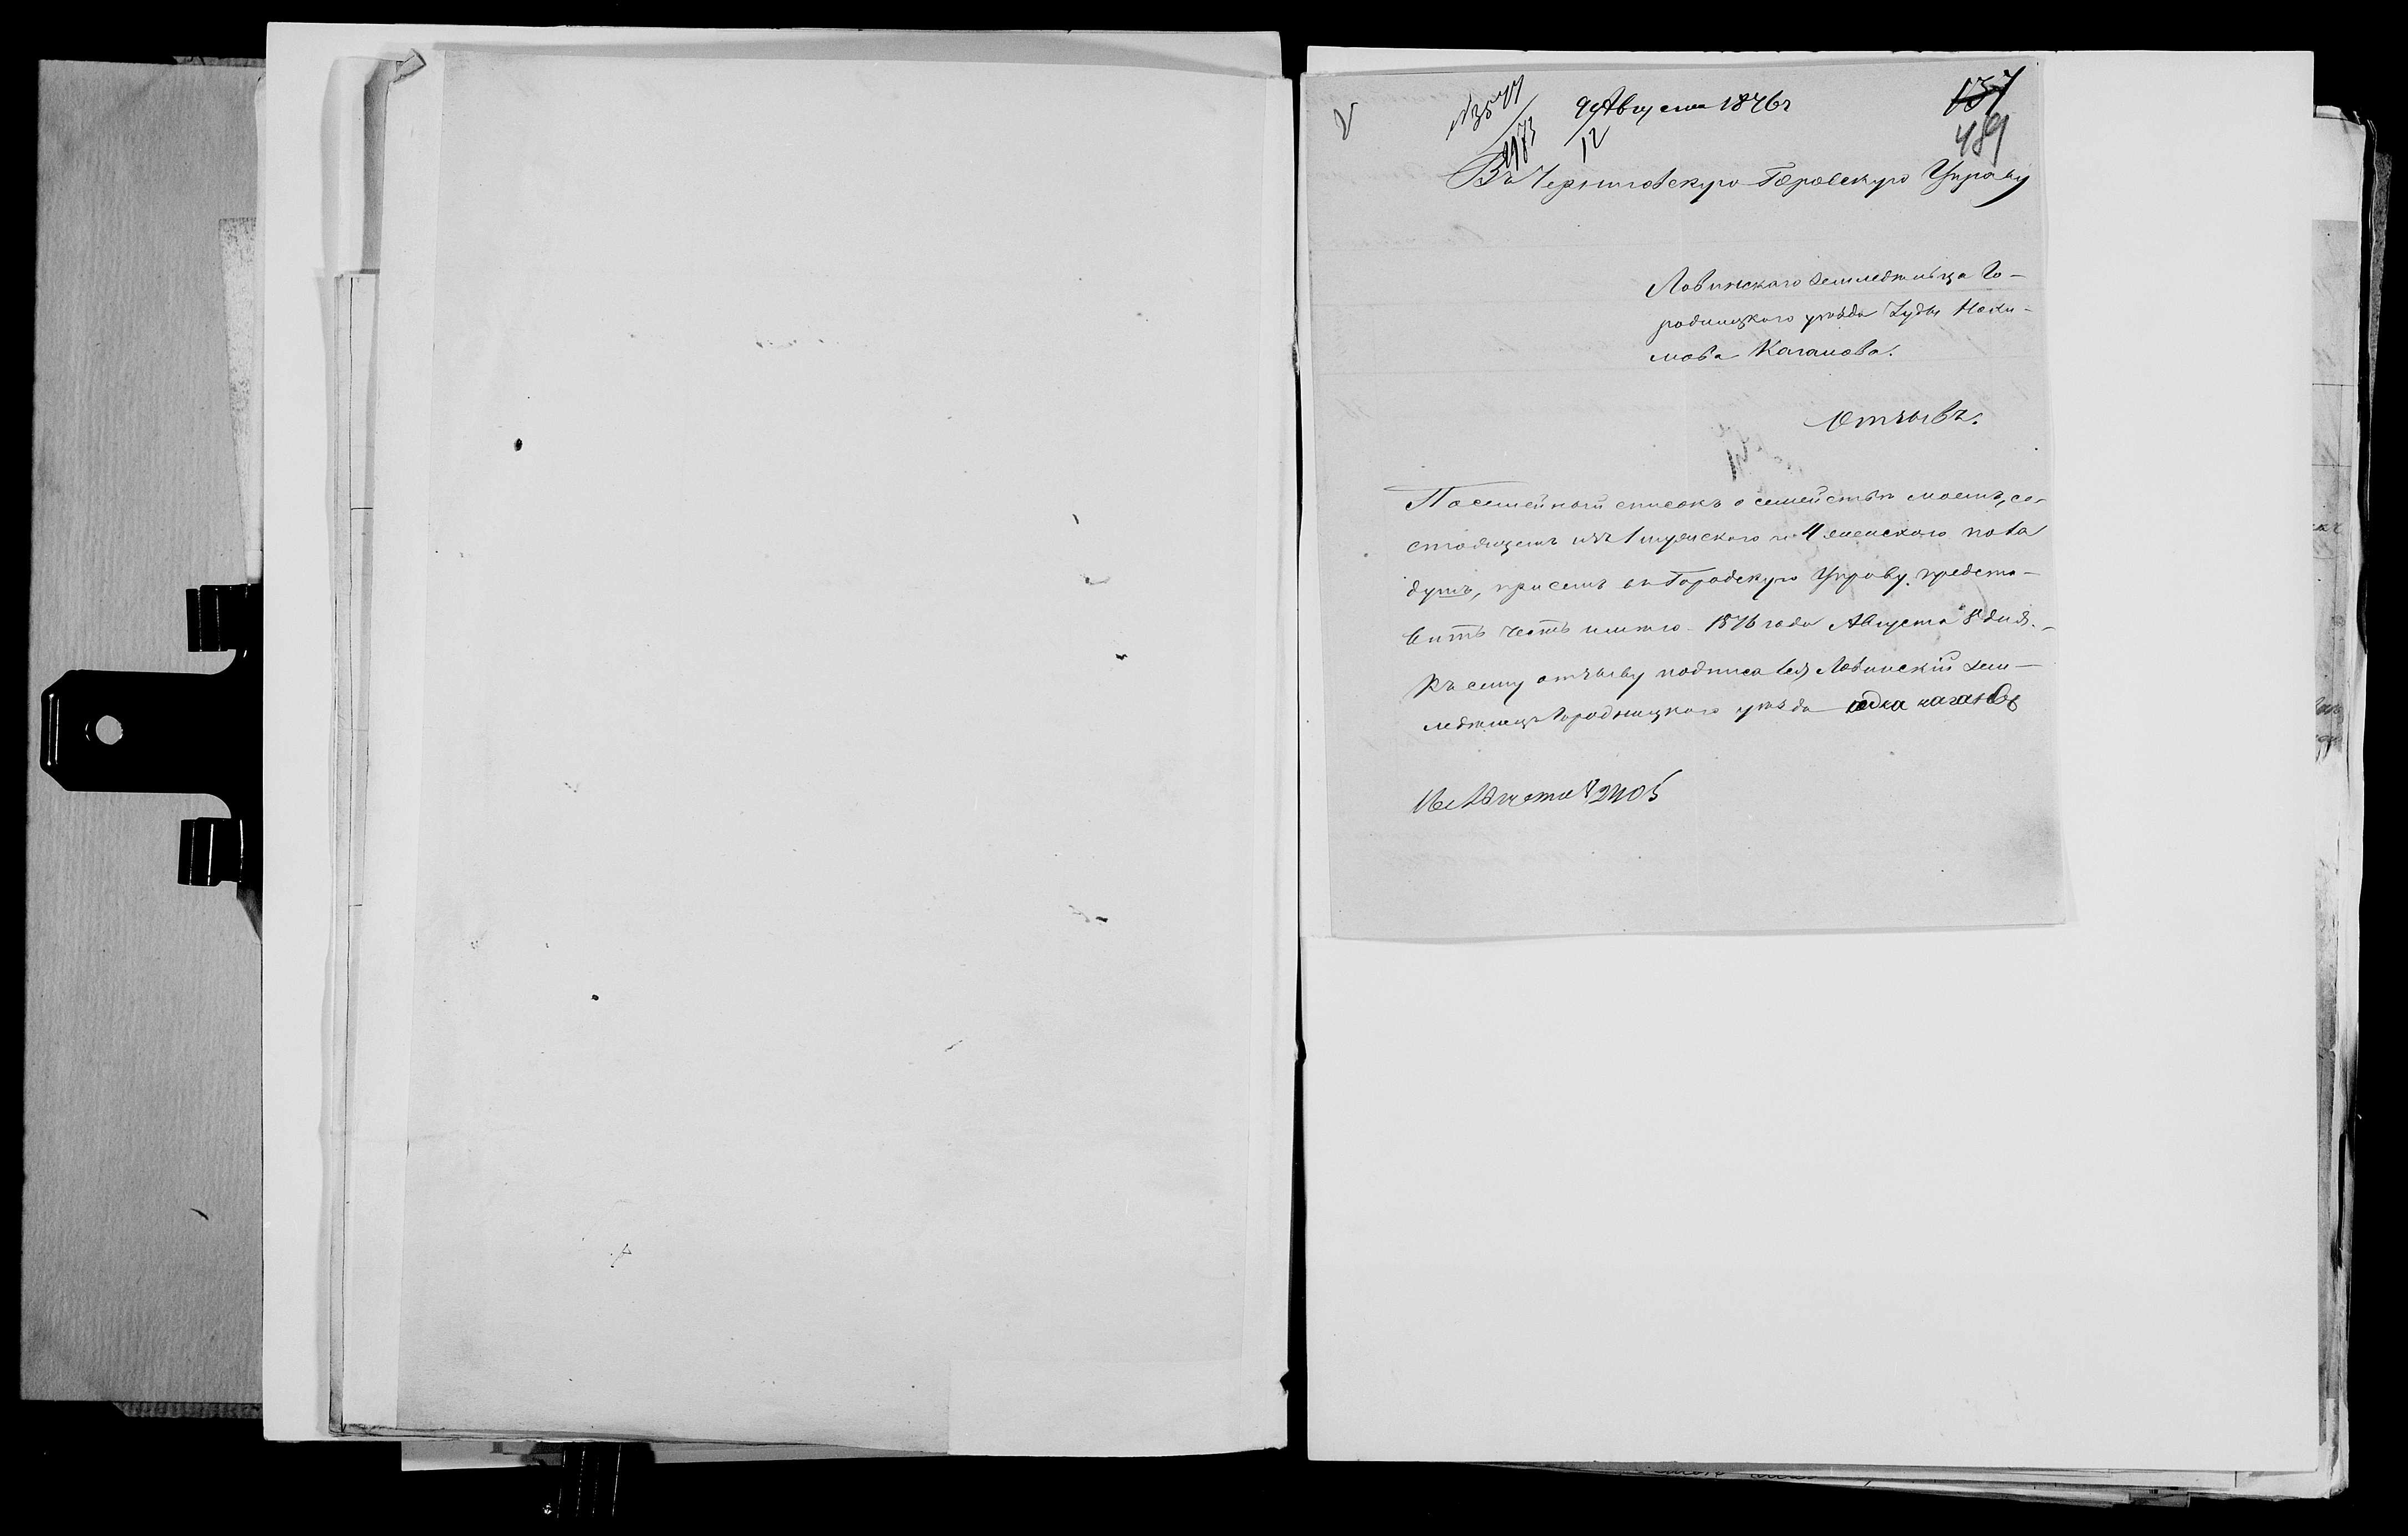 №3577
2173
9 Августа 1876 г
12
137
489
Въ Черниговскую Городскую Управу
Ловинского земледѣльца Го-
родницкого уѣзда Іуды Нохи-
мова Каганова.
Отзывъ.
Посемейный списокъ о семействѣ моемъ, со-
стоящемъ изъ 1 мужского и 4 женского пола
душъ, при семъ въ Городскую Управу предста-
вить честь имѣю 1876 года Августа 8 дня.
Къ сему отзыву подписался Ловинскій зем-
ледѣлецъ Городницкого уѣзда юдка кагановъ
Августа